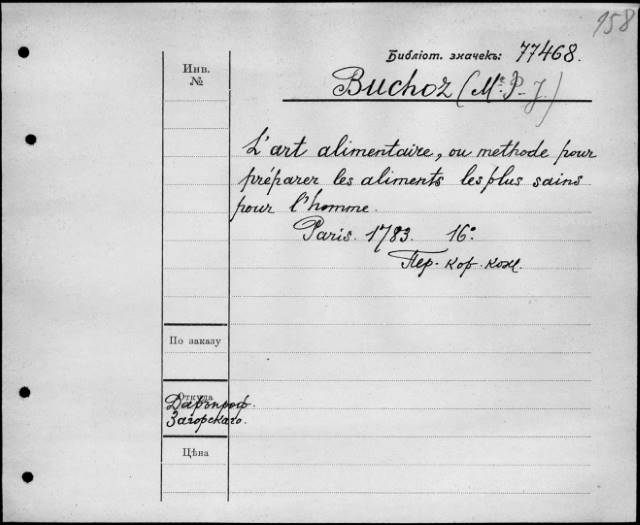 158
Библіот. значекъ: 77468.
Инв.
№
Buchoz (Mr. P-J.)
L'art alimentaire, ou methode pour
préparer les aliments les plus sains
pour l'homme.
Paris. 1783. 16º.
Пер. кор. кож.
По заказу
Откуда
Даръ проф.
Загорскаго.
Цѣна